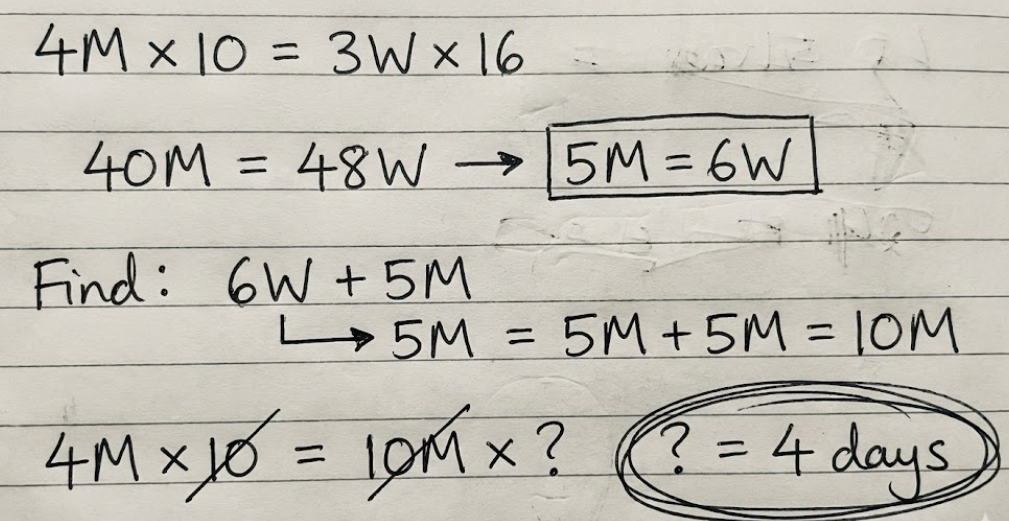 4M × 10 = 3W × 16
40M = 48W → 5M = 6W
Find: 6W + 5M
↳ 5M = 5M + 5M = 10M
4M × 10 = 10M × ? ? = 4 days